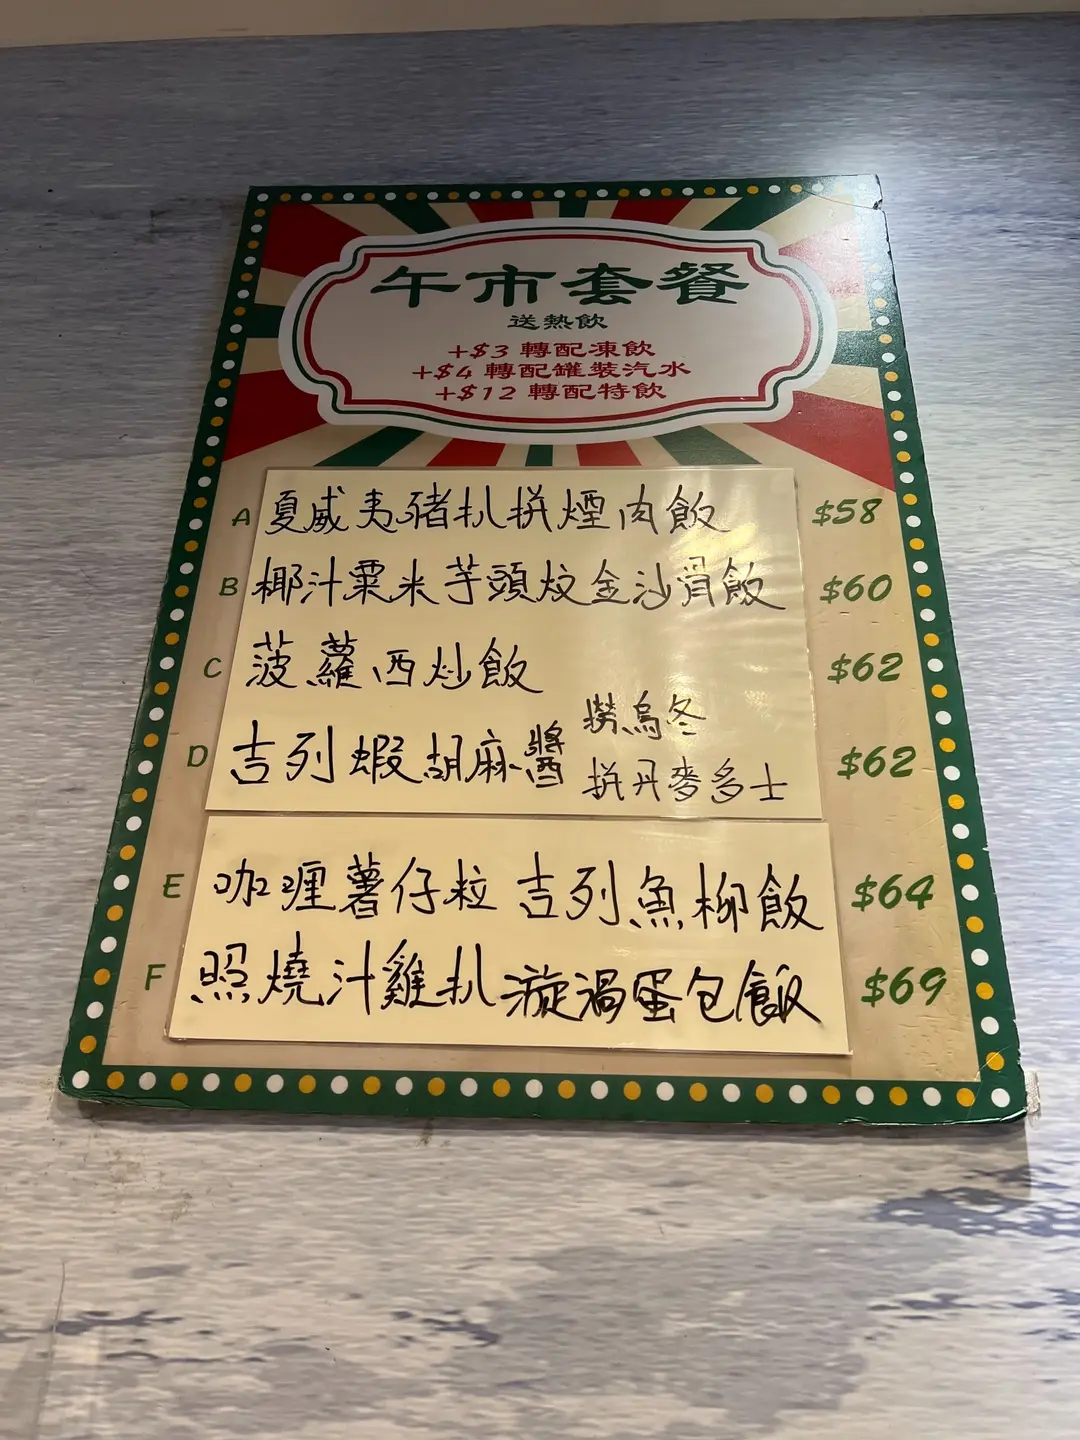 午市套餐
送熱飲
+$3 轉配凍飲
+$4 轉配罐裝汽水
+$12 轉配特飲
A 夏威夷豬扒拼煙肉飯 $58
B 椰汁粟米芋頭炆金沙骨飯 $60
C 菠蘿西炒飯 $62
D 吉列蝦胡麻醬 撈烏冬 拼丹麥多士 $62
E 咖喱薯仔粒 吉列魚柳飯 $64
F 照燒汁雞扒漩渦蛋包飯 $69